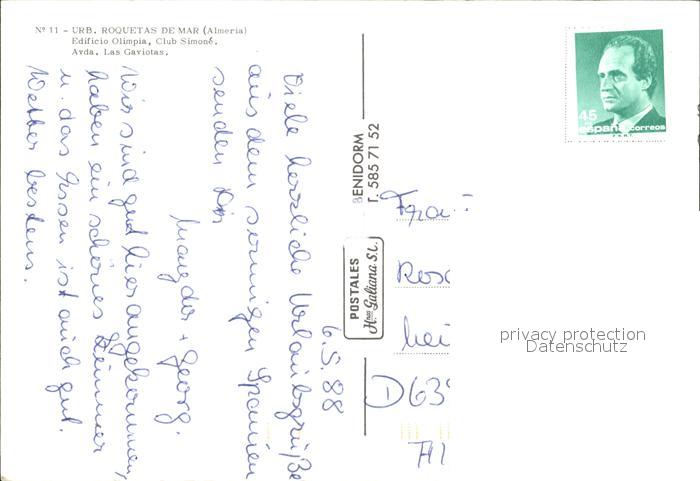 Nº 11 - URB. ROQUETAS DE MAR (Almería)
Edificio Olimpia, Club Simoné.
Avda. Las Gaviotas.
6.5.88
Viele herzliche Urlaubsgrüße
aus dem sonnigen Spanien
senden Dir
+ Georg.
Wir sind gut hier angekommen,
haben ein schönes Zimmer
u. das Essen ist auch gut.
Wetter bestens.
BENIDORM
T. 585 71 52
POSTALES
Hnos Galiana S.L.
45
españa correos
Frau
D63
privacy protection
Datenschutz